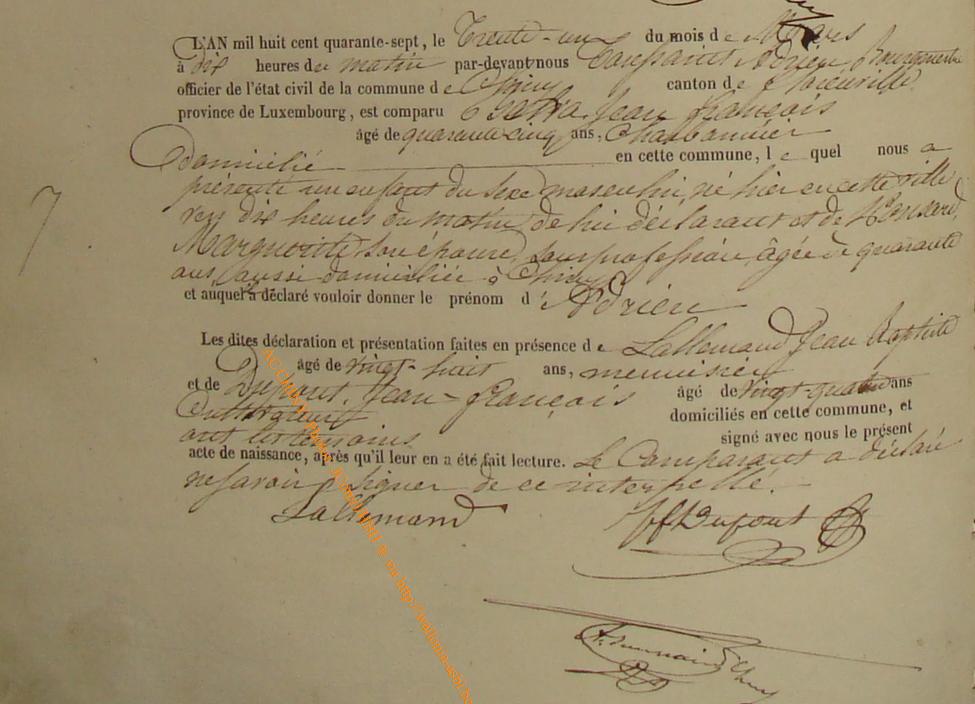 L'AN mil huit cent quarante-sept, le Trente-un du mois de Mars
à dix heures du matin par-devant nous Adrien Bourguemestre
officier de l'état civil de la commune de Chiny canton de Florenville
province de Luxembourg, est comparu Jean François
âgé de quarante cinq ans, Charbonnier
domicilié en cette commune, le quel nous a
présenté un enfant du Sexe masculin, né hier en cette ville
vers dix heures du matin, de lui déclarant et de
Marguerite son épouse, sans profession, âgée de quarante
ans, aussi domiciliée à Chiny
et auquel a déclaré vouloir donner le prénom d'Adrien
Les dites déclaration et présentation faites en présence de Lallemand Jean Baptiste
âgé de vingt-huit ans, menuisier
et de Dupont, Jean-françois âgé de vingt-quatre ans
Cultivateur domiciliés en cette commune, et
ont les temoins signé avec nous le présent
acte de naissance, après qu'il leur en a été fait lecture. Le Comparant a déclaré
ne savoir signer de ce interpelle.
Lallemand JfDupont
7